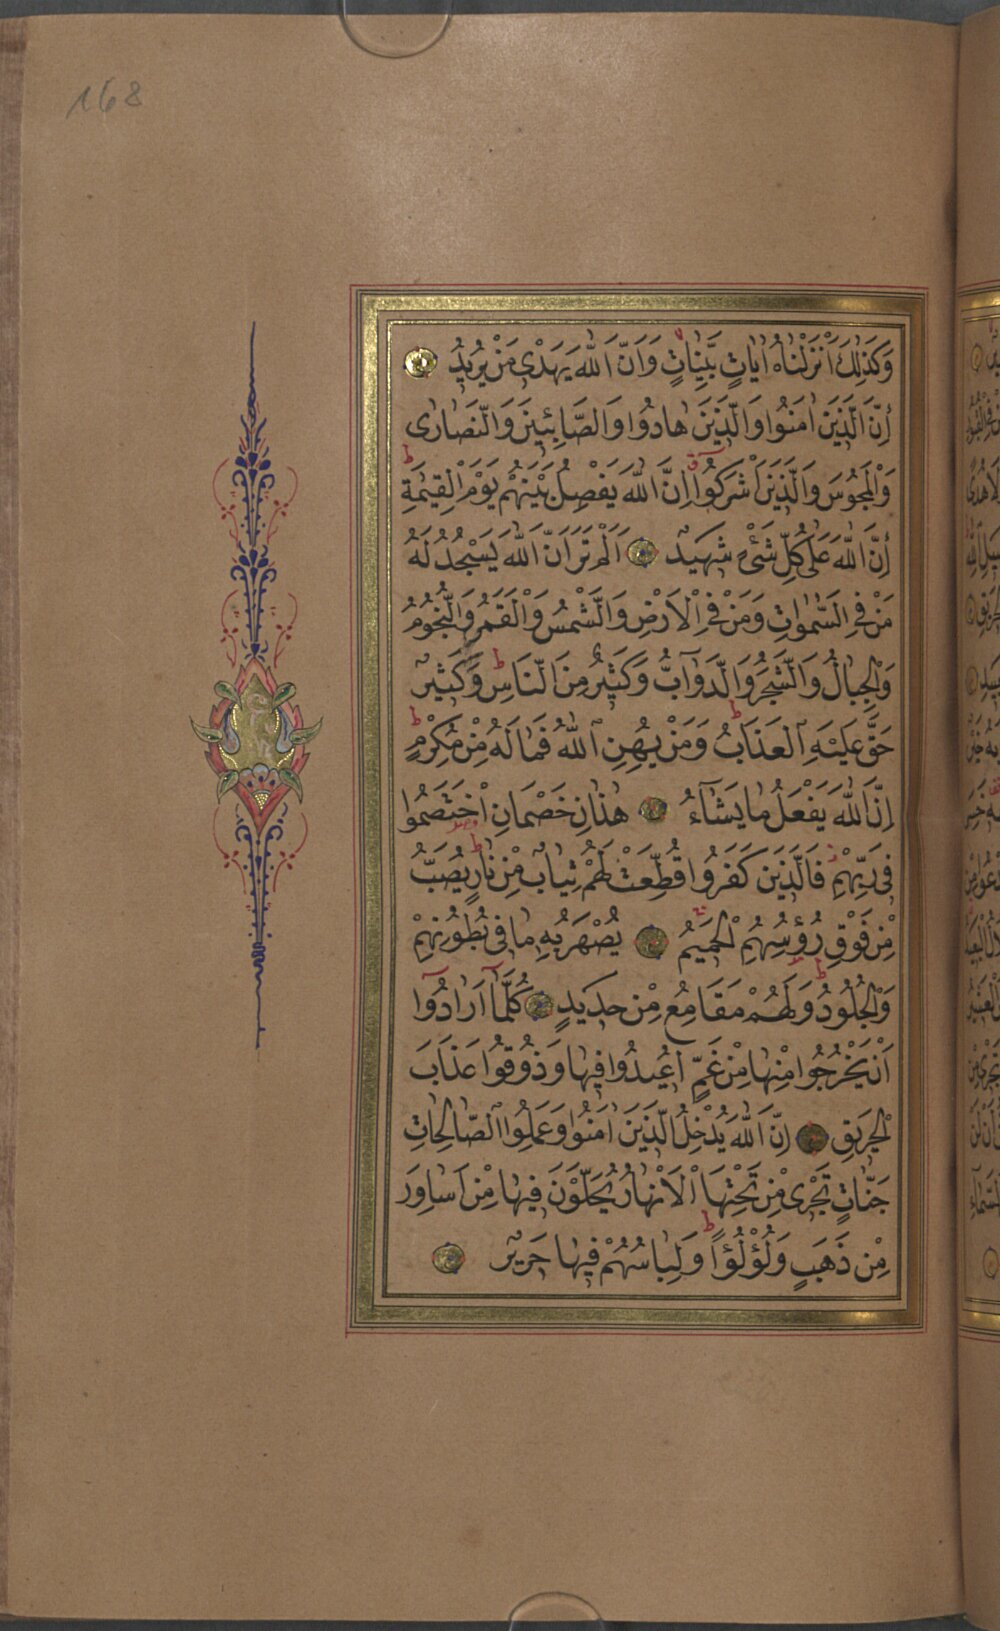 168
وَكَذٰلِكَ اَنْزَلْنَاهُ اٰيَاتٍ بَيِّنَاتٍ وَاَنَّ اللّٰهَ يَهْدٖى مَنْ يُرٖيدُ
اِنَّ الَّذٖينَ اٰمَنُوا وَالَّذٖينَ هَادُوا وَالصَّابِئٖينَ وَالنَّصَارٰى
وَالْمَجُوسَ وَالَّذٖينَ اَشْرَكُوا اِنَّ اللّٰهَ يَفْصِلُ بَيْنَهُمْ يَوْمَ الْقِيٰمَةِ
اِنَّ اللّٰهَ عَلٰى كُلِّ شَیْءٍ شَهٖيدٌ اَلَمْ تَرَ اَنَّ اللّٰهَ يَسْجُدُ لَهُ
مَنْ فِى السَّمٰوَاتِ وَمَنْ فِى الْاَرْضِ وَالشَّمْسُ وَالْقَمَرُ وَالنُّجُومُ
وَالْجِبَالُ وَالشَّجَرُ وَالدَّوَآبُّ وَكَثٖيرٌ مِنَ النَّاسِ وَكَثٖيرٌ
حَقَّ عَلَيْهِ الْعَذَابُ وَمَنْ يُهِنِ اللّٰهُ فَمَا لَهُ مِنْ مُكْرِمٍ
اِنَّ اللّٰهَ يَفْعَلُ مَا يَشَآءُ هٰذَانِ خَصْمَانِ اخْتَصَمُوا
فٖى رَبِّهِمْ فَالَّذٖينَ كَفَرُوا قُطِّعَتْ لَهُمْ ثِيَابٌ مِنْ نَارٍ يُصَبُّ
مِنْ فَوْقِ رُؤُسِهِمُ الْحَمٖيمُ يُصْهَرُ بِهٖ مَا فٖى بُطُونِهِمْ
وَالْجُلُودُ وَلَهُمْ مَقَامِعُ مِنْ حَدٖيدٍ كُلَّمَآ اَرَادُوٓا
اَنْ يَخْرُجُوا مِنْهَا مِنْ غَمٍّ اُعٖيدُوا فٖيهَا وَذُوقُوا عَذَابَ
الْحَرٖيقِ اِنَّ اللّٰهَ يُدْخِلُ الَّذٖينَ اٰمَنُوا وَعَمِلُوا الصَّالِحَاتِ
جَنَّاتٍ تَجْرٖى مِنْ تَحْتِهَا الْاَنْهَارُ يُحَلَّوْنَ فٖيهَا مِنْ اَسَاوِرَ
مِنْ ذَهَبٍ وَلُؤْلُؤًا وَلِبَاسُهُمْ فٖيهَا حَرٖيرٌ